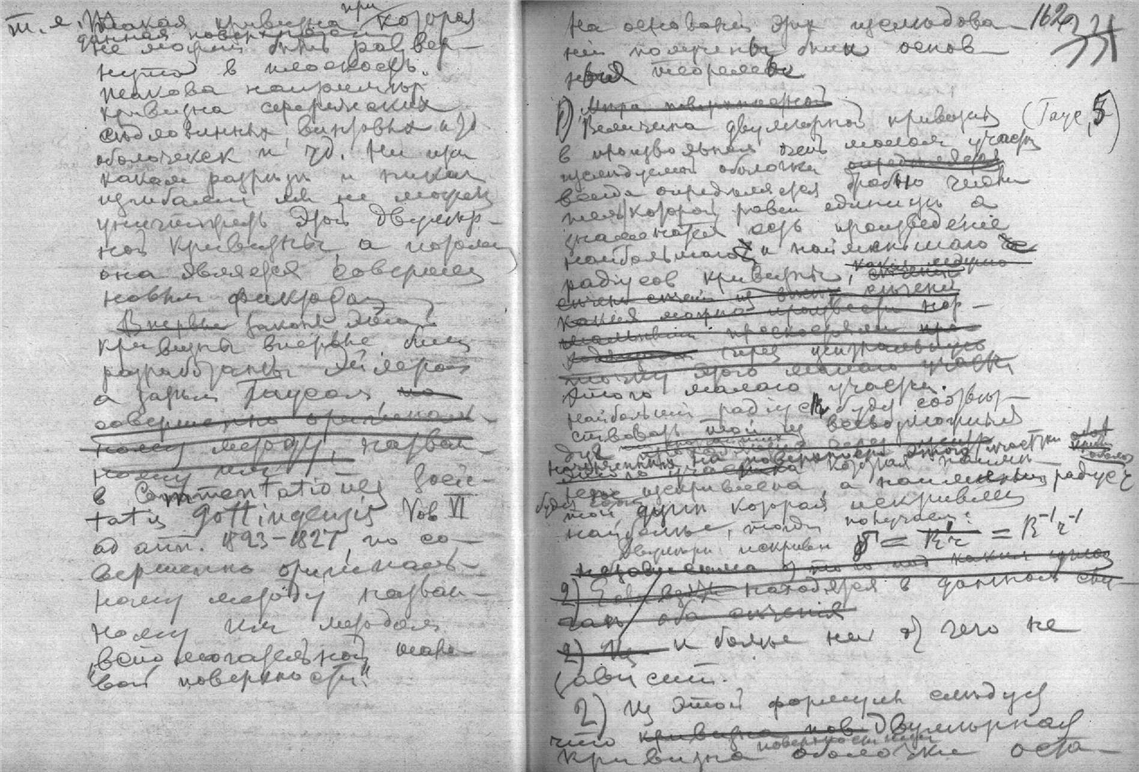 т. е. такая кривизна при которой
данная поверхность
не может быть развер-
нута в плоскость.
Такова например
кривизна сферических
седловинных винтовых и др
оболочек и т. д. Ни при
каком разрезе и никаким
изгибанием мы не можем
уничтожить этой двумер-
ной кривизны, а потому
она является совершенно
новым фактором
Впервые законы этой
кривизны впервые были
разработаны Эйлером
а затем Гаусом, по
совершенно оригиналь-
ному методу, назван-
ному им
в Commentationes Socie-
tatis Gottingensis Vol VI
ad ann. 1823-1827, по со-
вершенно оригиналь-
ному методу назван-
ному им методом
"вспомогательной шаро-
вой поверхности".
162
331
На основании этих исследова-
ний получены были основ-
ные теоремы
1) Мера поверхностной
Величина двумерной кривизны (Гаус, 5)
в произвольном очень малом участке
исследуемой оболочки определяется
всегда определяется дробью числи-
тель которой равен единице а
знаменатель есть произведение
наибольшаго и наименьшаго
радиусов кривизны,
какия можно произвести нор-
мальными плоскостями про-
через центральную
точку этого малаго участка
этого малаго участка.
Наибольший радиус R будет соответ-
ствовать той из всевозможных
дуг
которая наиме-
нее искривлена а наименьший радиус r
будет той дуги которая искривлена
наиболее, тогда получаем:
Двумерн. искривл. = 1/Rr = R⁻¹ r⁻¹
независимо от того под каким углом
2) находятся в данном слу-
чае оба сечения
2) Из и более ни от чего не
зависит.
2) Из этой формулы следует
что кривизна пов двумерная
поверхности или
кривизна оболочки оста-